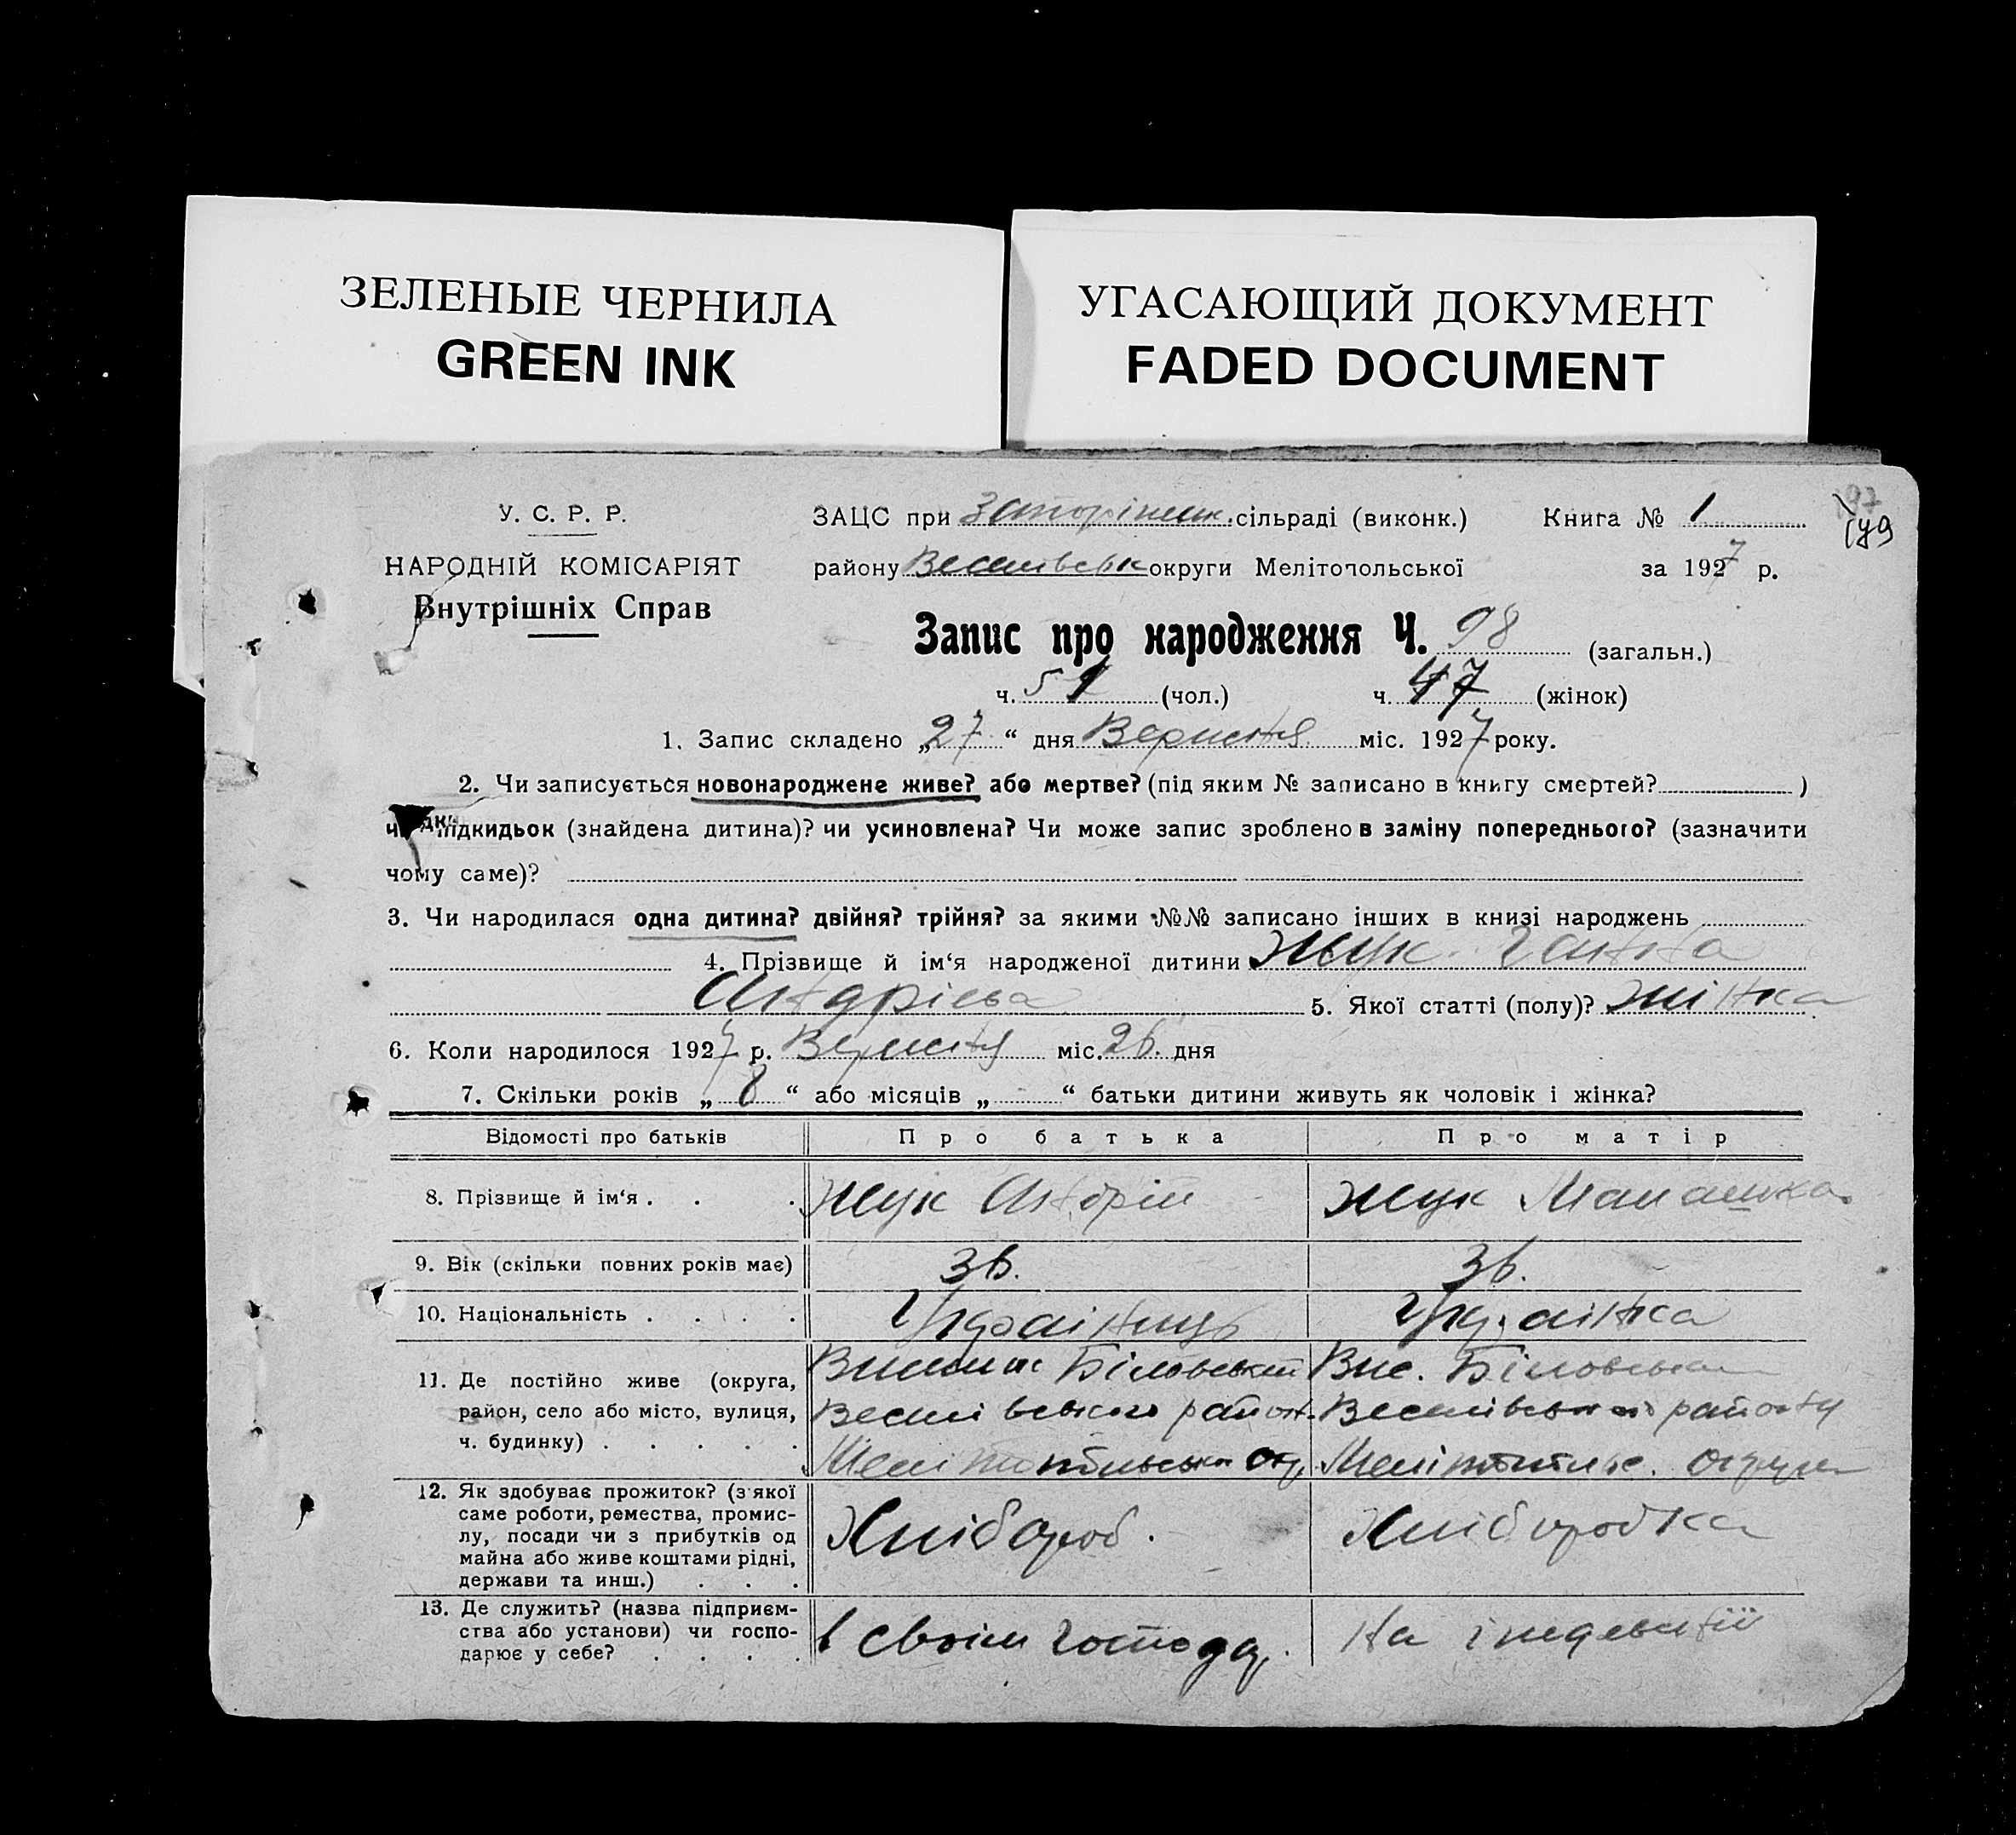 ЗЕЛЕНЫЕ ЧЕРНИЛА
GREEN INK
УГАСАЮЩИЙ ДОКУМЕНТ
FADED DOCUMENT
У. С. Р. Р.
НАРОДНІЙ КОМІСАРІЯТ
Внутрішніх Справ
ЗАЦС при сільраді (виконк.) Книга № 1
району Веселівськ округи Мелітопольської за 1927 р.
Запис про народження Ч. 98 (загальн.)
ч. 51 (чол.) ч. 47 (жінок)
1. Запис складено „27“ дня Вересня міс. 1927 року.
2. Чи записується новонароджене живе? або мертве? (під яким № записано в книгу смертей? )
чи підкидьок (знайдена дитина)? чи усиновлена? Чи може запис зроблено в заміну попереднього? (зазначити
чому саме)?
3. Чи народилася одна дитина? двійня? трійня? за якими №№ записано інших в книзі народжень
4. Прізвище й ім‘я народженої дитини Жук Ганна
Андрієва 5. Якої статті (полу)? жінка
6. Коли народилося 1927 р. Вересня міс. 26. дня
7. Скільки років „ 8 “ або місяців „ “ батьки дитини живуть як чоловік і жінка?
Відомості про батьків Про батька Про матір
8. Прізвище й ім‘я . . . Жук Андрій Жук
9. Вік (скільки повних років має) 36. 36.
10. Національність . . . . Українець Українка
11. Де постійно живе (округа, район, село або місто, вулиця, ч. будинку) . . . . .
Біловський Вис. Біловський
Веселівського район. Веселівського району
Мелітопольськ окр. Мелітопильс. округи
12. Як здобуває прожиток? (з якої саме роботи, ремества, промислу, посади чи з прибутків од майна або живе коштами рідні, держави та инш.) . . . Хлібороб. Хліборобка
13. Де служить? (назва підприємства або установи) чи господарює у себе? . . . . в своїм господар. На